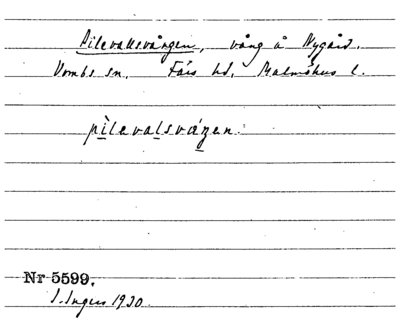 Pilevallsvången, vång å Nygård.
Vombs sn. Färs hd. Malmöhus l.
pìlevalsváŋen.
Nr 5599.
I. Ingers 1930.